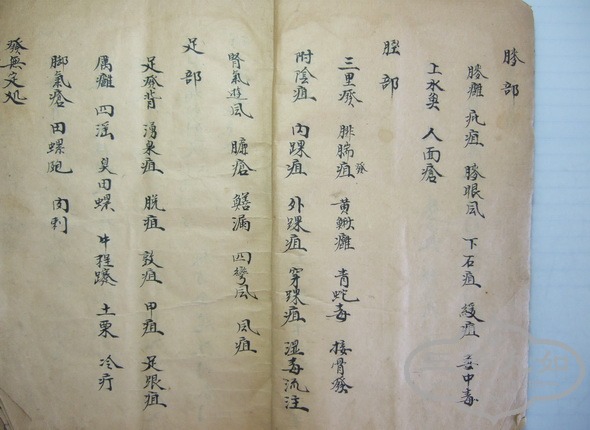 膝部
膝癰 疵疽 膝眼風 下石疽 緩疽 委中毒
上水魚 人面瘡
脛部
三里發 腓腨發疽 黃鰍癰 青蛇毒 接骨發
附陰疽 內踝疽 外踝疽 穿踝疽 湿毒流注
腎氣遊風 臁瘡 鱔漏 四彎風 風疽
足部
足發背 湧泉疽 脱疽 敦疽 甲疽 足跟疽
厲癰 四淫 臭田螺 牛程蹇 土栗 冷疔
脚氣瘡 田螺泡 肉刺
發無定処